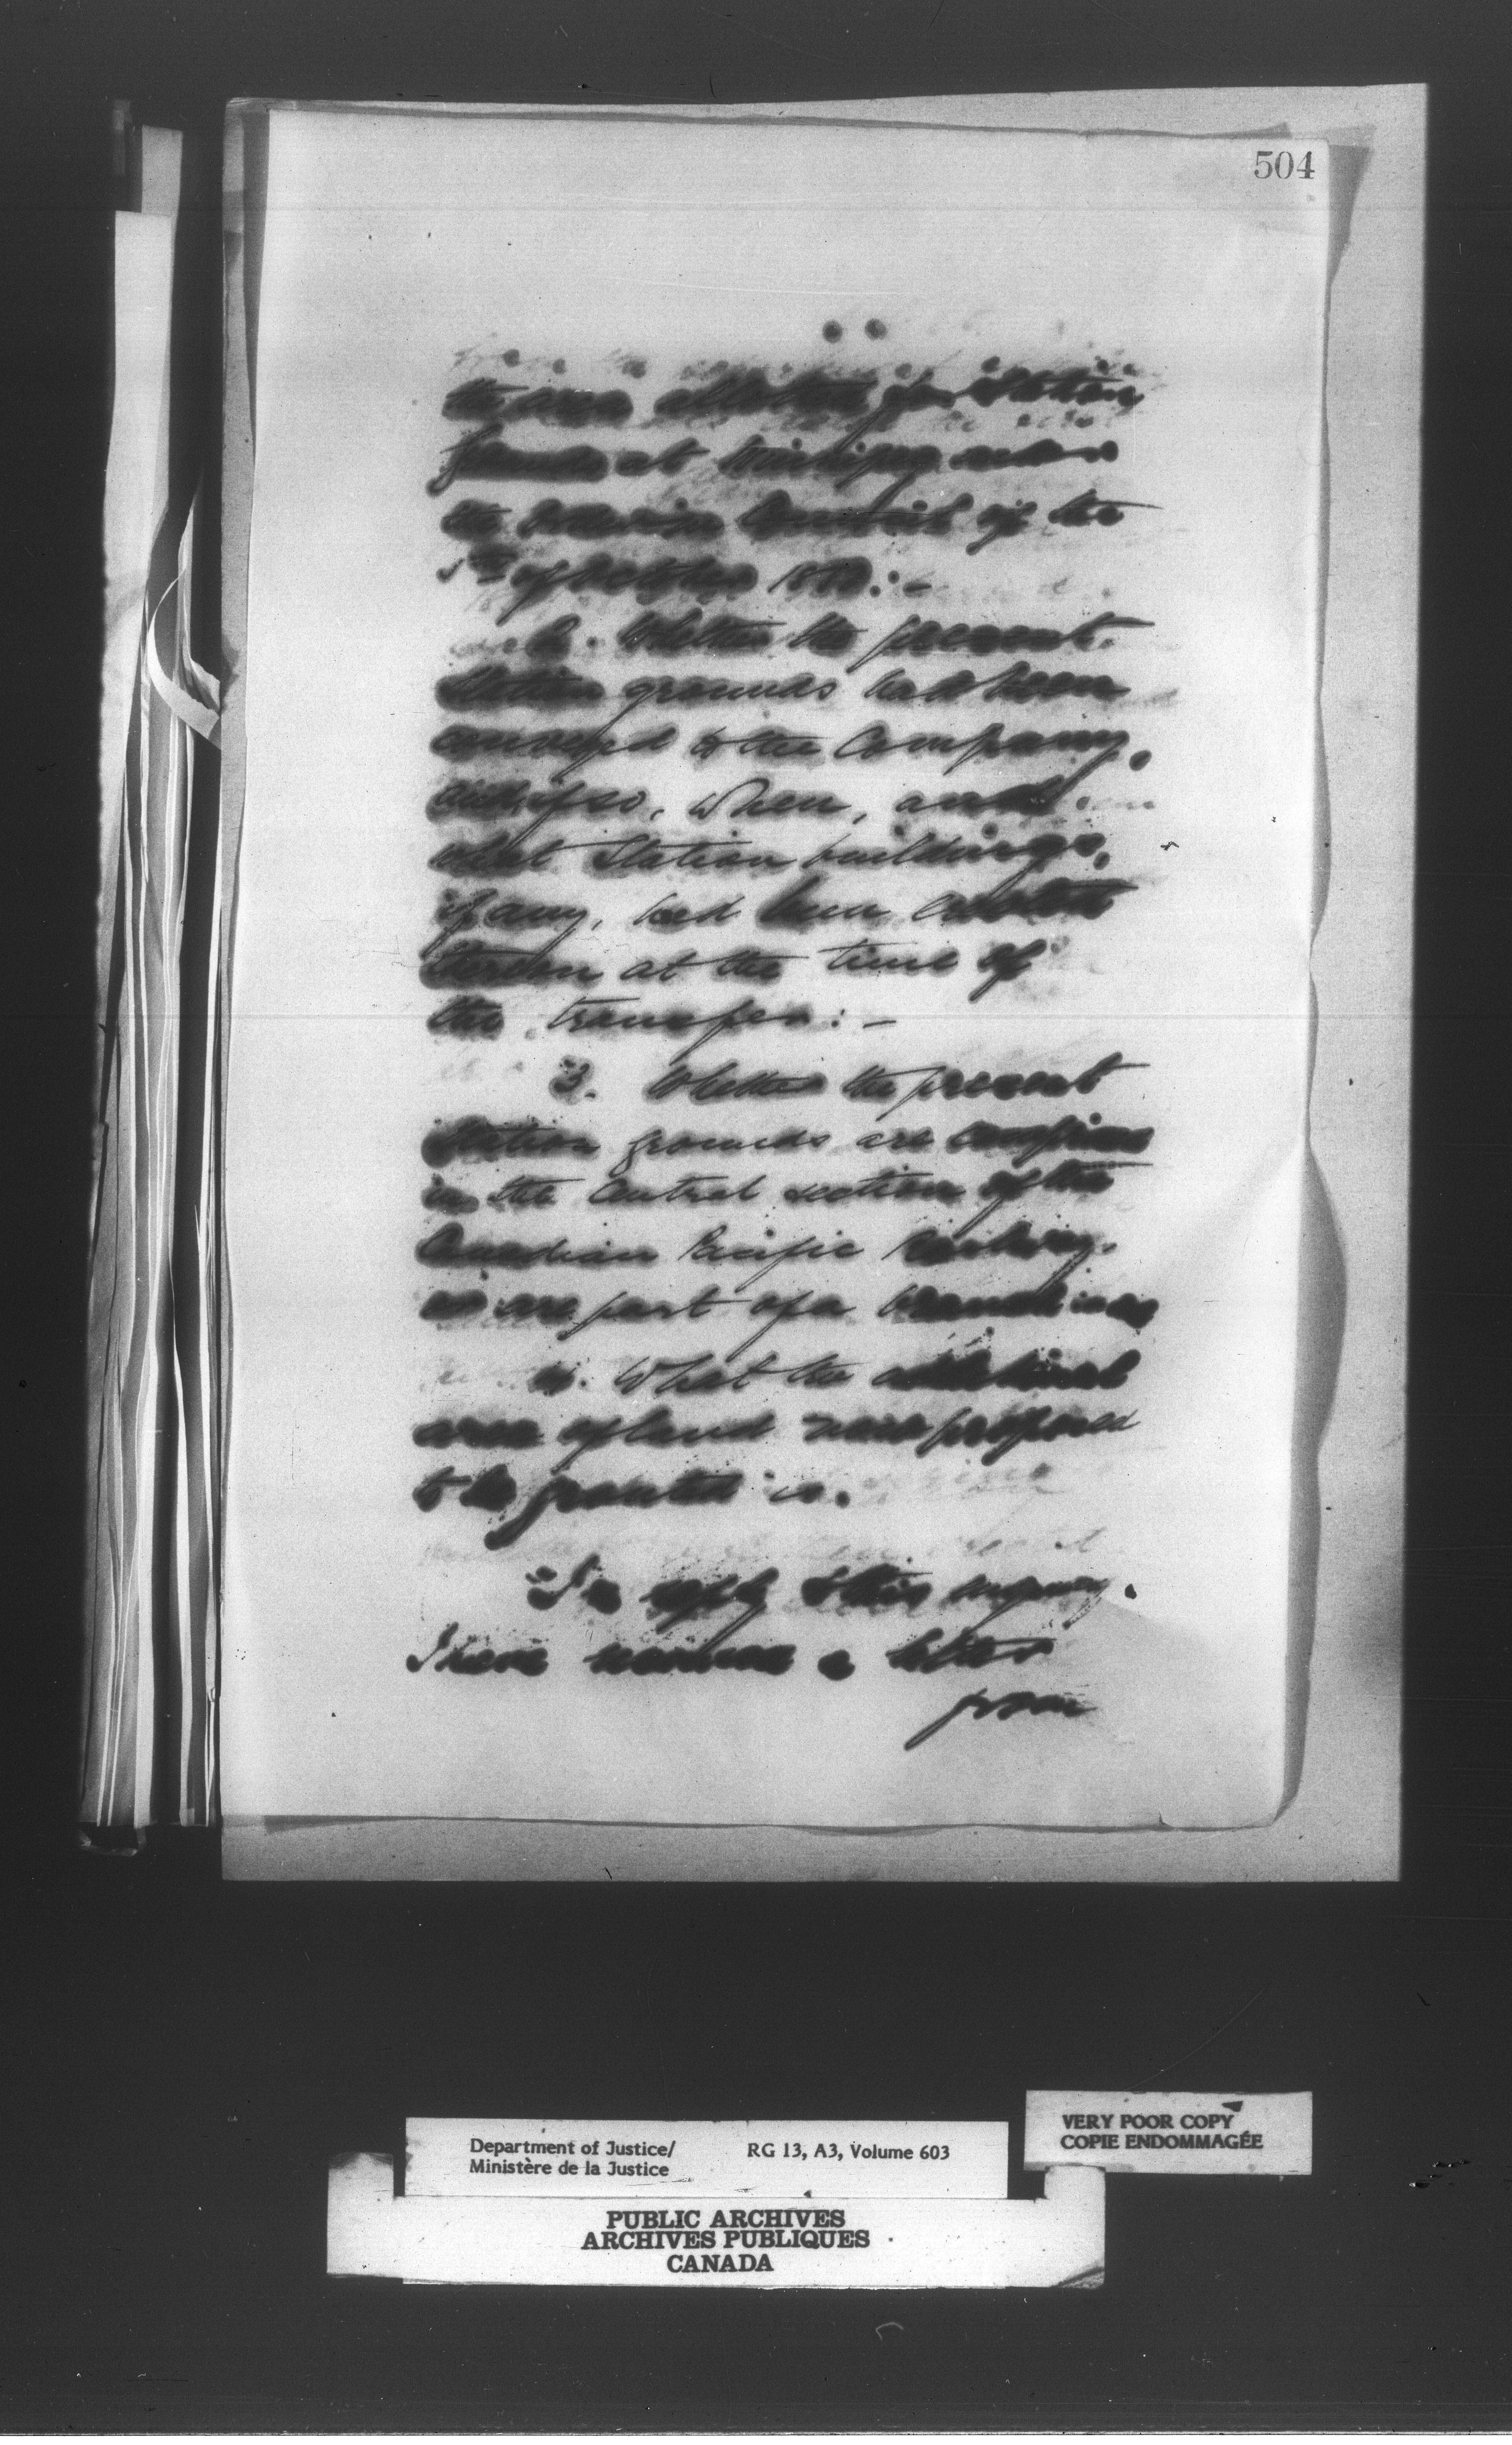 504
the area allotted for Station
Grounds at Winnipeg under
the Order in Council of the
5th of October 1880:-
2. Whether the present
Station grounds had been
conveyed to the Company,
and if so, when, and
what Station buildings,
if any, had been erected
thereon at the time of
the transfer:-
3. Whether the present
Station grounds are
in the Central section of the
Canadian Pacific Railway.
or are part of a branch
4. What the additional
area of land now proposed
to be granted is.
In reply to this inquiry.
I have received a letter
from
VERY POOR COPY
COPIE ENDOMMAGÉE
Department of Justice/ RG 13, A3, Volume 603
Ministère de la Justice
PUBLIC ARCHIVES
ARCHIVES PUBLIQUES
CANADA